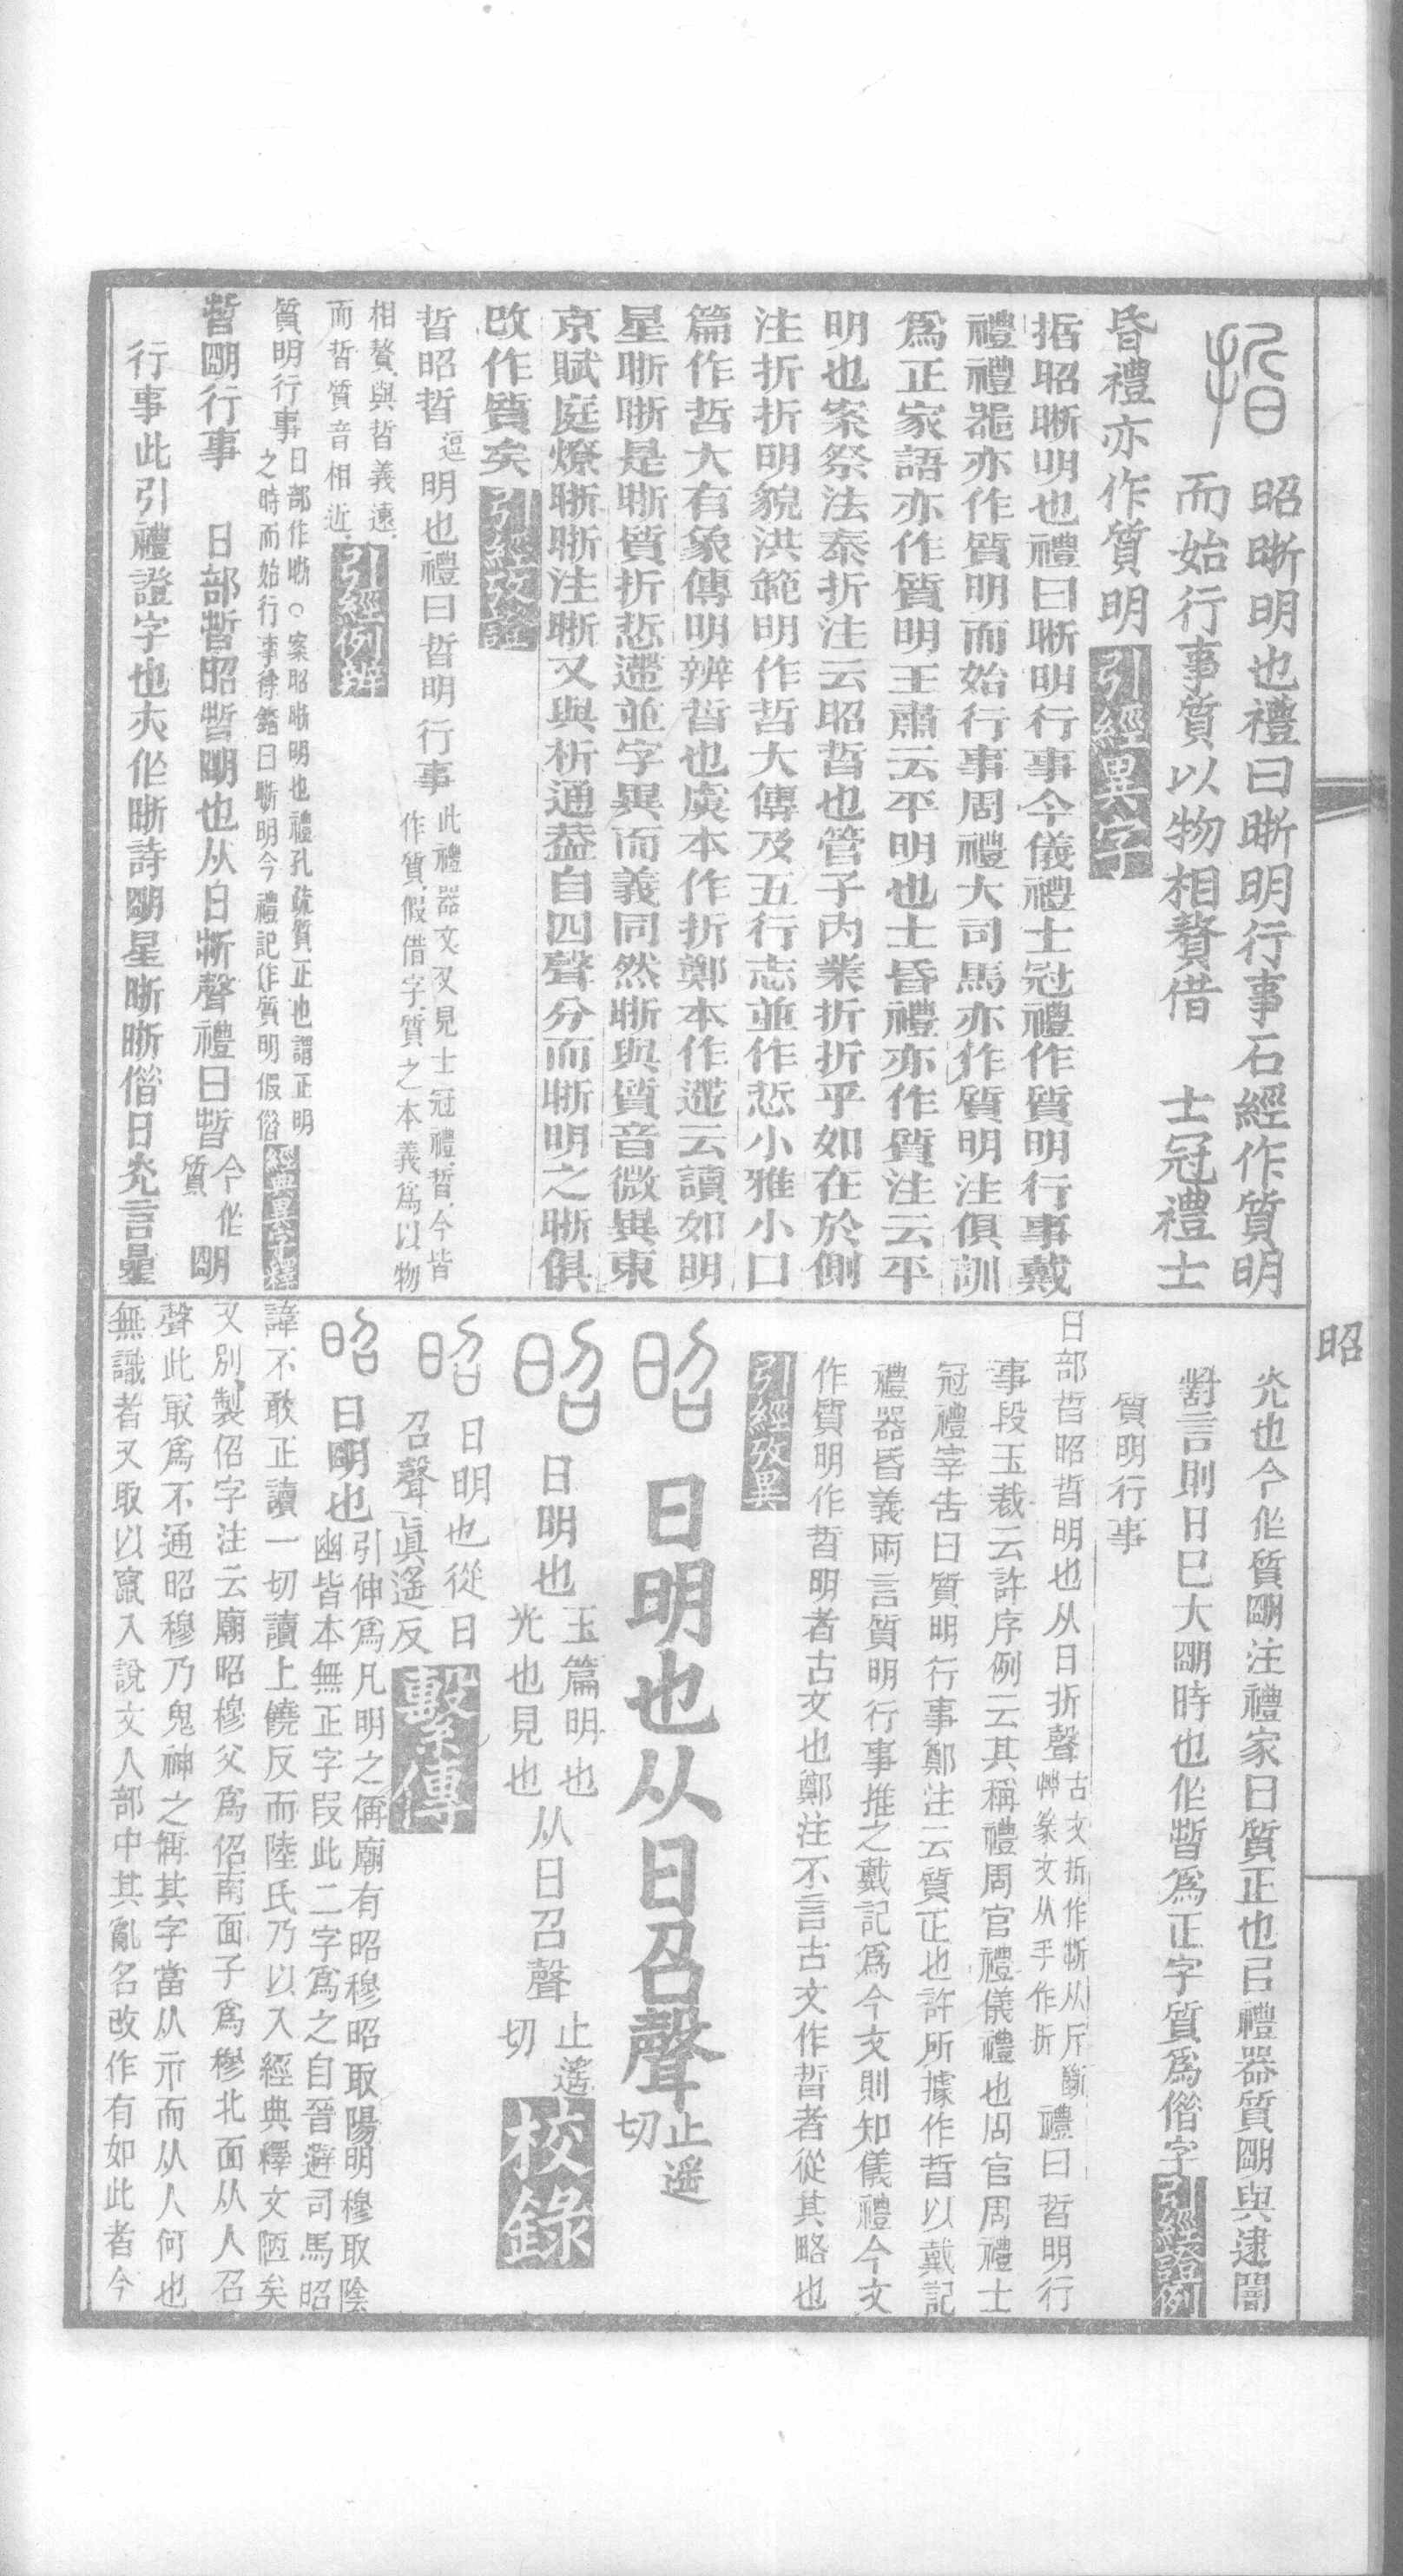 昭晣明也禮曰晣明行事石經作質明
而始行事質以物相贅借　士冠禮士
昏禮亦作質明 引經異字
据昭晣明也禮曰晣明行事今儀禮士冠禮作質明行事戴
禮禮器亦作質明而始行事周禮大司馬亦作質明注俱訓
爲正家語亦作質明王肅云平明也士昏禮亦作質注云平
明也案祭法泰折注云昭晢也管子內業折折乎如在於側
注折折明貌洪範明作哲大傳及五行志並作悊小雅小口
篇作哲大有象傳明辨晢也虞本作折鄭本作遰云讀如明
星晣晣是晣質折悊遰並字異而義同然晣與質音微異東
京賦庭燎晣晣注晣又與析通葢自四聲分而晣明之晣俱
改作質矣 引經攷證
晢昭晢逗明也禮曰晢明行事此禮器文又見士冠禮晢今皆作質假借字質之本義爲以物
相贅與晢義遠
而晢質音相近 引經例辨
質明行事日部作晣○案昭晣明也禮孔疏質正也謂正明之時而始行事徐鍇曰晣明今禮記作質明假俗 經典異字釋
晢朙行事　日部晢昭晢朙也从日斱聲禮曰晢今作質朙
行事此引禮證字也大作晣詩朙星晣晣偕日光言曐
光也今作質朙注禮家曰質正也㠯禮器質朙與逮闇
對言則日巳大朙時也作晢爲正字質爲偕字 引經證例
質明行事
日部晢昭晢明也从日折聲古文折作斱从斤斷艸篆文从手作折禮曰晢明行
事段玉裁云許序例云其稱禮周官禮儀禮也周官周禮士
冠禮宰告曰質明行事鄭注云質正也許所據作晢以戴記
禮器昏義兩言質明行事推之戴記爲今文則知儀禮今文
作質明作晢明者古文也鄭注不言古文作晢者從其略也
引經攷異
昭 日明也从日召聲止遥切
昭 日明也玉篇明也光也見也从日召聲止遙切 校錄
昭 日明也從日
召聲眞遙反 繫傳
昭 日朙也引伸爲凡明之偁廟有昭穆昭取陽明穆取陰幽皆本無正字叚此二字爲之自晉避司馬昭
諱不敢正讀一切讀上饒反而陸氏乃以入經典釋文陋矣
又別製佋字注云廟昭穆父爲佋南面子爲穆北面从人召
聲此㝡爲不通昭穆乃鬼神之偁其字當从示而从人何也
無識者又取以竄入說文人部中其亂名改作有如此者今
昭